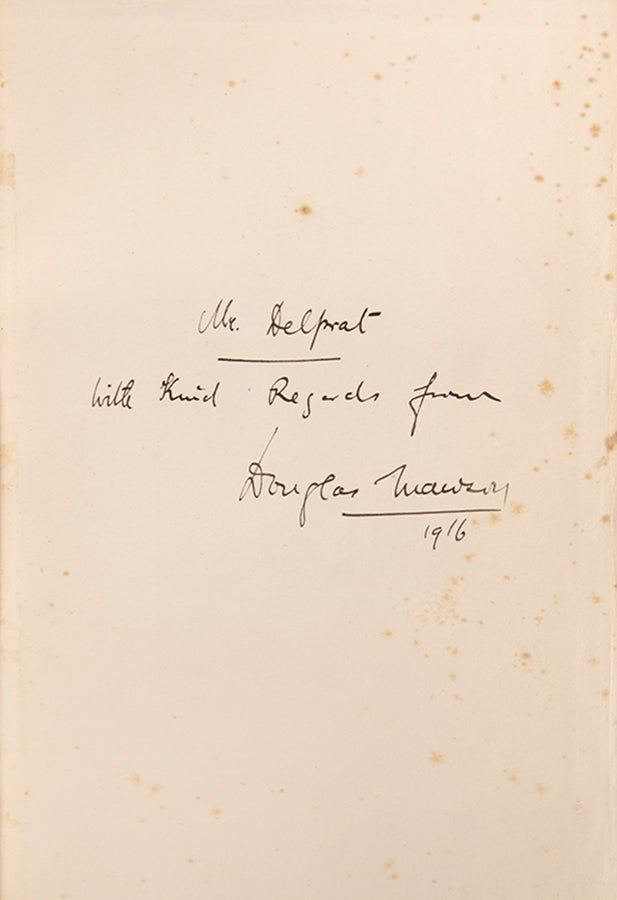 Mr. Delprat
With Kind Regards from
Douglas Mawson
1916